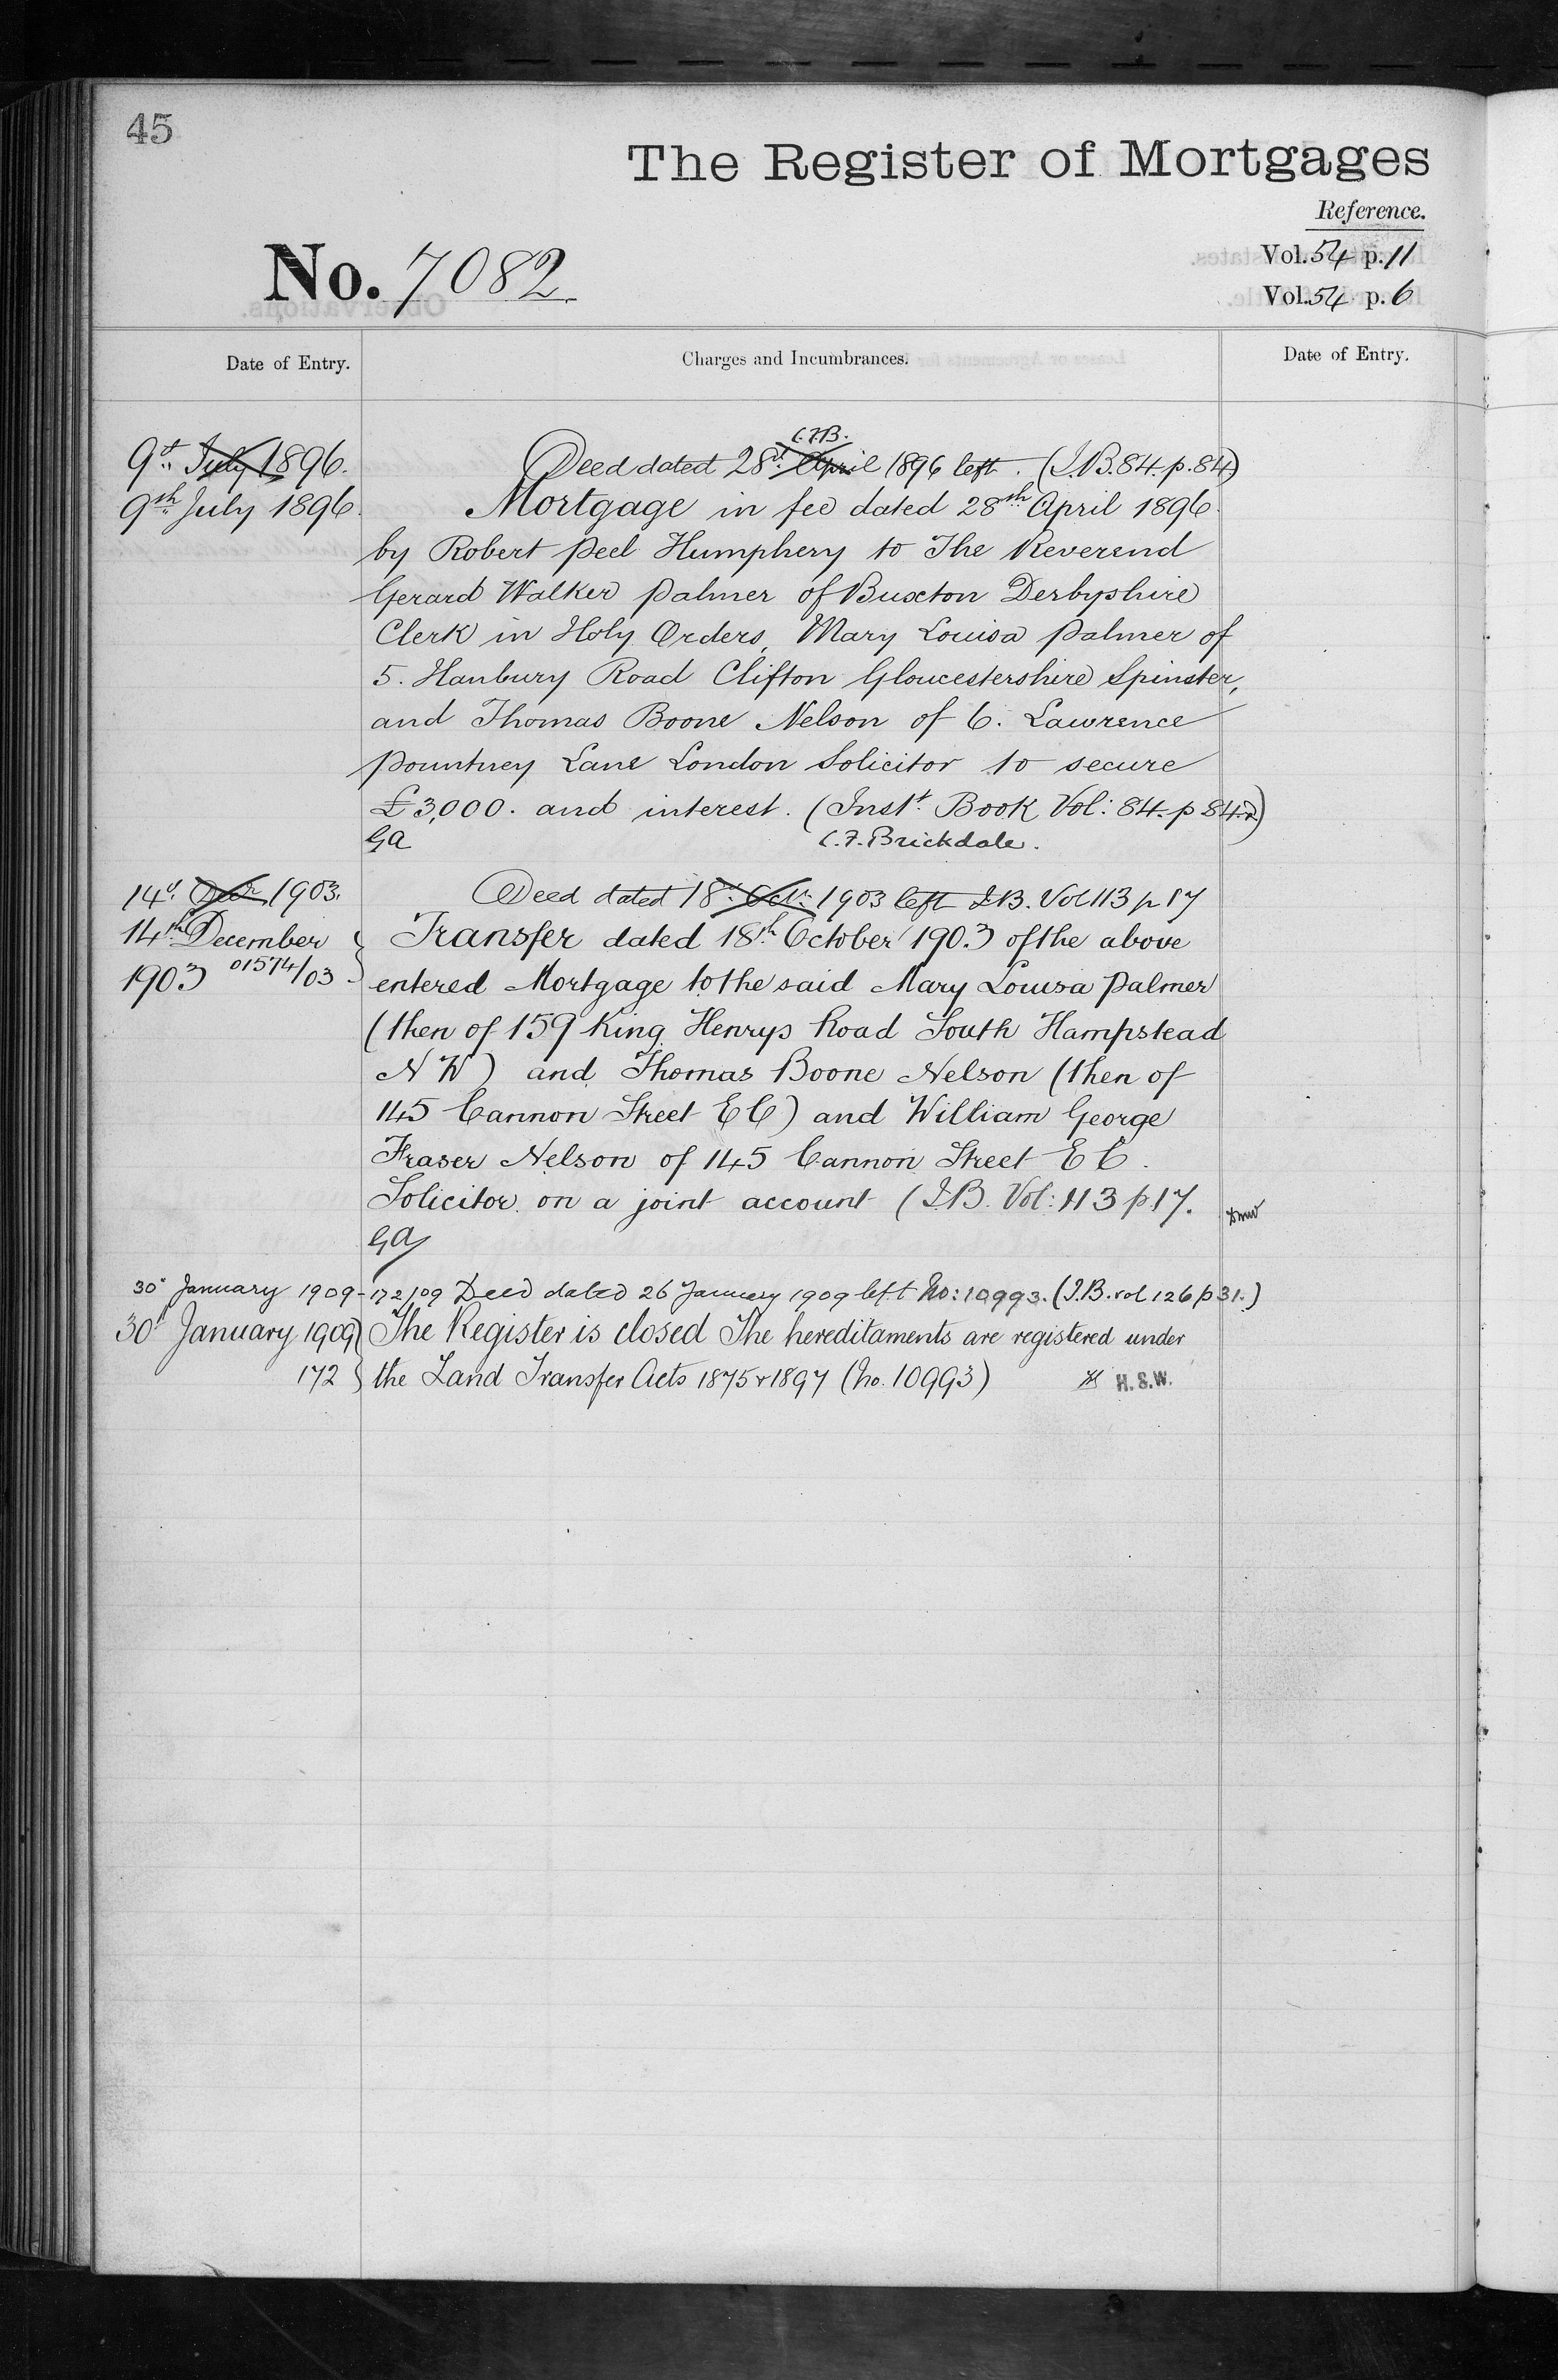 45
The Register of Mortgages
Reference.
No. 7082
Vol. 54 p. 11
Vol. 54 p. 6
Date of Entry.
Charges and Incumbrances.
Date of Entry.
C.F.B.
9th July 1896. Deed dated 28th April 1896 left. (I.B. 84. p. 84)
9th July 1896. Mortgage in fee dated 28th April 1896
by Robert Peel Humphery to The Reverend
Gerard Walker Palmer of Buxton Derbyshire
Clerk in Holy Orders, Mary Louisa Palmer of
5. Hanbury Road Clifton Gloucestershire Spinster,
and Thomas Boone Nelson of 6. Lawrence
Pountney Lane London Solicitor to secure
£3,000. and interest. (Inst. Book Vol: 84. p 84.)
GA C.F. Brickdale.
14th Decr 1903. Deed dated 18th Octr. 1903 left I.B. Vol 113 p 17
14th December Transfer dated 18th October 1903 of the above
1903 01574/03 entered Mortgage to the said Mary Louisa Palmer
(then of 159 King Henrys Road South Hampstead
N W) and Thomas Boone Nelson (then of
145 Cannon Street E C) and William George
Fraser Nelson of 145 Cannon Street E C.
Solicitor on a joint account (I.B. Vol: 113 p. 17.
GA
30th January 1909 - 172/09 Deed dated 26 January 1909 left No: 10993. (I.B. vol 126 p 31.)
30th January 1909 The Register is closed The hereditaments are registered under
172 the Land Transfer Acts 1875 & 1897 (No. 10993) H.S.W.